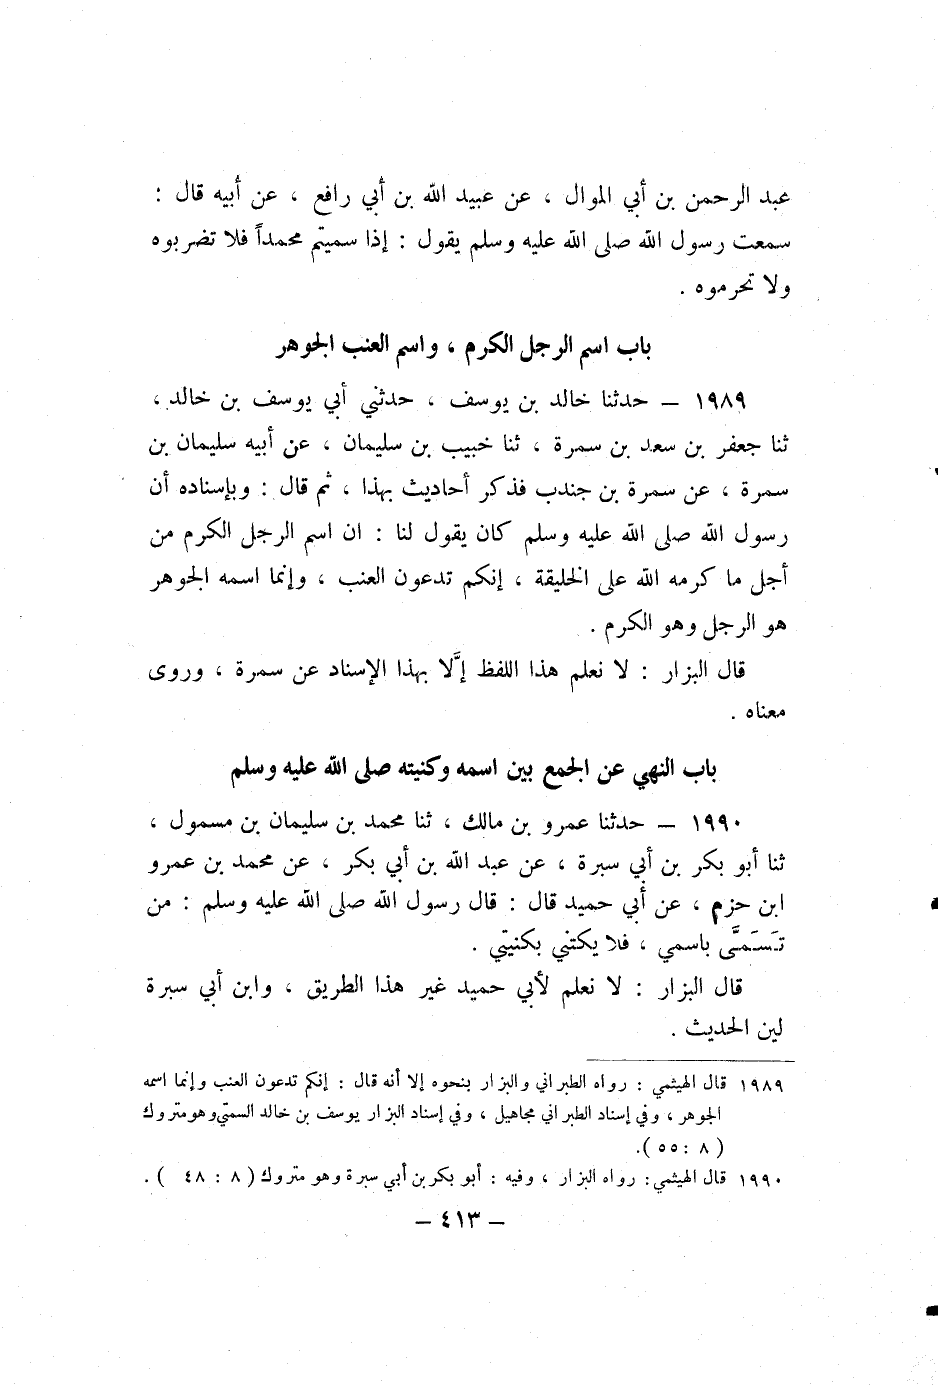 عبد الرحمن بن أبي الموال ، عن عبيد الله بن أبي رافع ، عن أبيه قال :
سمعت رسول الله صلى الله عليه وسلم يقول : إذا سميتم محمداً فلا تضربوه
ولا تحرموه .
باب اسم الرجل الكرم ، واسم العنب الجوهر
١٩٨٩ – حدثنا خالد بن يوسف ، حدثني أبي يوسف بن خالد ،
ثنا جعفر بن سعد بن سمرة ، ثنا خبيب بن سليمان ، عن أبيه سليمان بن
سمرة ، عن سمرة بن جندب فذكر أحاديث بهذا ، ثم قال : وبإسناده أن
رسول الله صلى الله عليه وسلم كان يقول لنا : ان اسم الرجل الكرم من
أجل ما كرمه الله على الخليقة ، إنكم تدعون العنب ، وإنما اسمه الجوهر
هو الرجل وهو الكرم .
قال البزار : لا نعلم هذا اللفظ إلَّا بهذا الإسناد عن سمرة ، وروى
معناه .
باب النهي عن الجمع بين اسمه وكنيته صلى الله عليه وسلم
١٩٩٠ – حدثنا عمرو بن مالك ، ثنا محمد بن سليمان بن مسمول ،
ثنا أبو بكر بن أبي سبرة ، عن عبد الله بن أبي بكر ، عن محمد بن عمرو
ابن حزم ، عن أبي حميد قال : قال رسول الله صلى الله عليه وسلم : من
تَسَمَّى باسمي ، فلا يكتني بكنيتي .
قال البزار : لا نعلم لأبي حميد غير هذا الطريق ، وابن أبي سبرة
لين الحديث .
١٩٨٩ قال الهيثمي : رواه الطبراني والبزار بنحوه إلا أنه قال : إنكم تدعون العنب وإنما اسمه
الجوهر ، وفي إسناد الطبراني مجاهيل ، وفي إسناد البزار يوسف بن خالد السمتي وهو متروك
( ٨ : ٥٥ ).
١٩٩٠ قال الهيثمي : رواه البزار ، وفيه : أبو بكر بن أبي سبرة وهو متروك ( ٨ : ٤٨ ) .
– ٤١٣ –